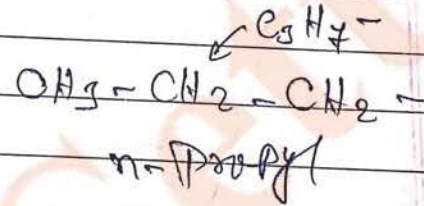 C3H7-
CH3-CH2-CH2-
n-Propyl